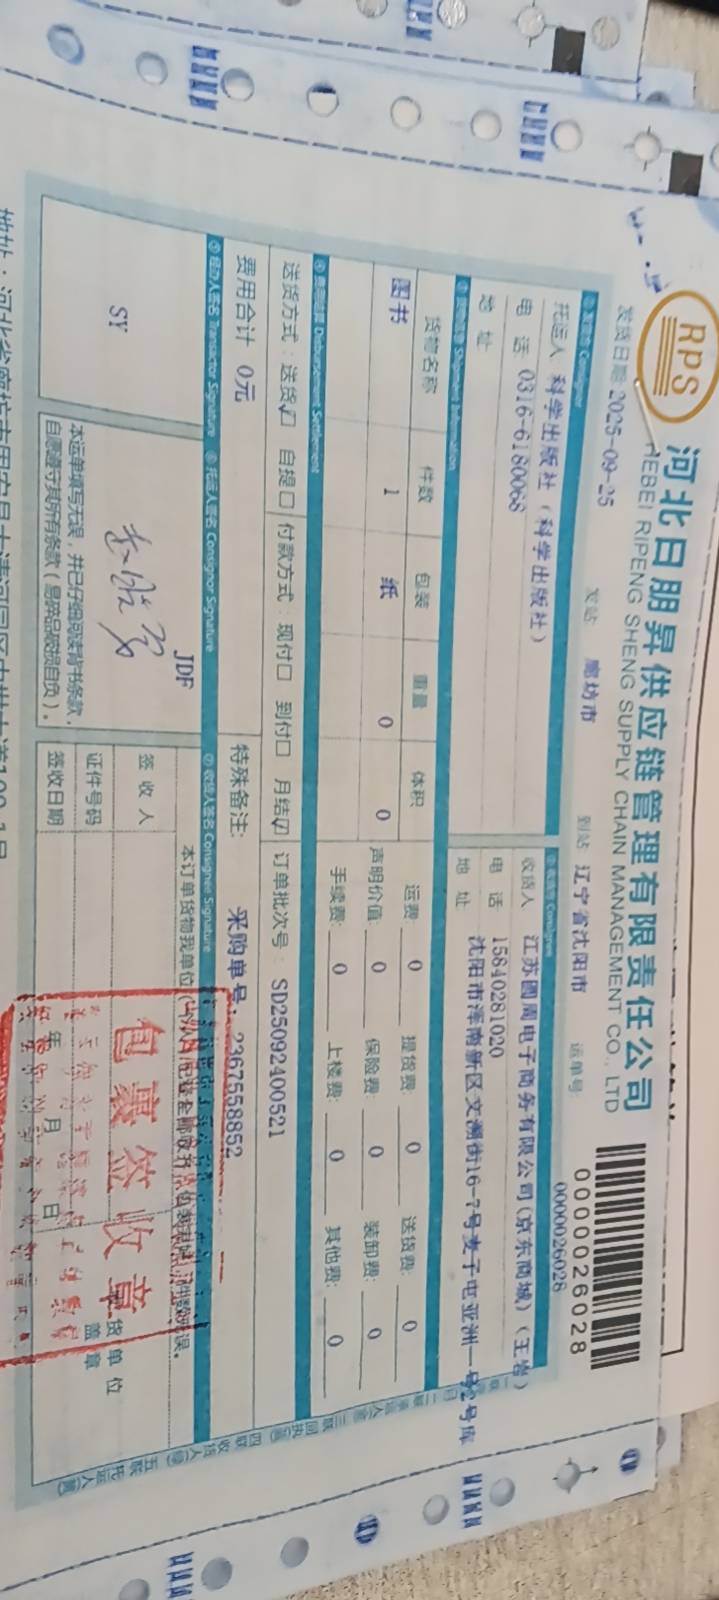 RPS
河北日朋昇供应链管理有限责任公司
HEBEI RIPENG SHENG SUPPLY CHAIN MANAGEMENT CO., LTD
0000026028
发货日期 2025-09-25 发站 廊坊市 到站 辽宁省沈阳市 运单号 0000026028
托运人 科学出版社（科学出版社） 收货人 江苏圆周电子商务有限公司(京东商城)（王岩）
电 话 0316-6180068 电 话 15840281020
地 址 地 址 沈阳市浑南新区文溯街16-7号麦子屯亚洲一号2号库
货物名称 件数 包装 重量 体积 运费: 0 提货费: 0 送货费: 0
图书 1 纸 0 0 声明价值: 0 保险费: 0 装卸费: 0
手续费: 0 上楼费: 0 其他费: 0
Disbursement Settlement
送货方式：送货☑ 自提☐ 付款方式：现付☐ 到付☐ 月结☑ 订单批次号：SD25092400521
费用合计 0元 特殊备注: 采购单号：2367558852
⑤ 经办人签名 Transactor Signature ⑥ 托运人签名 Consignor Signature ⑦ 收货人签名 Consignee Signature
SY
JDF
本运单填写无误，并已仔细阅读背书条款，
自愿遵守其所有条款（易碎品破损自负）。
本订单货物我单位
签 收 人
证件号码
签收日期 年 月 日
货单位
盖 章
包裹签收章